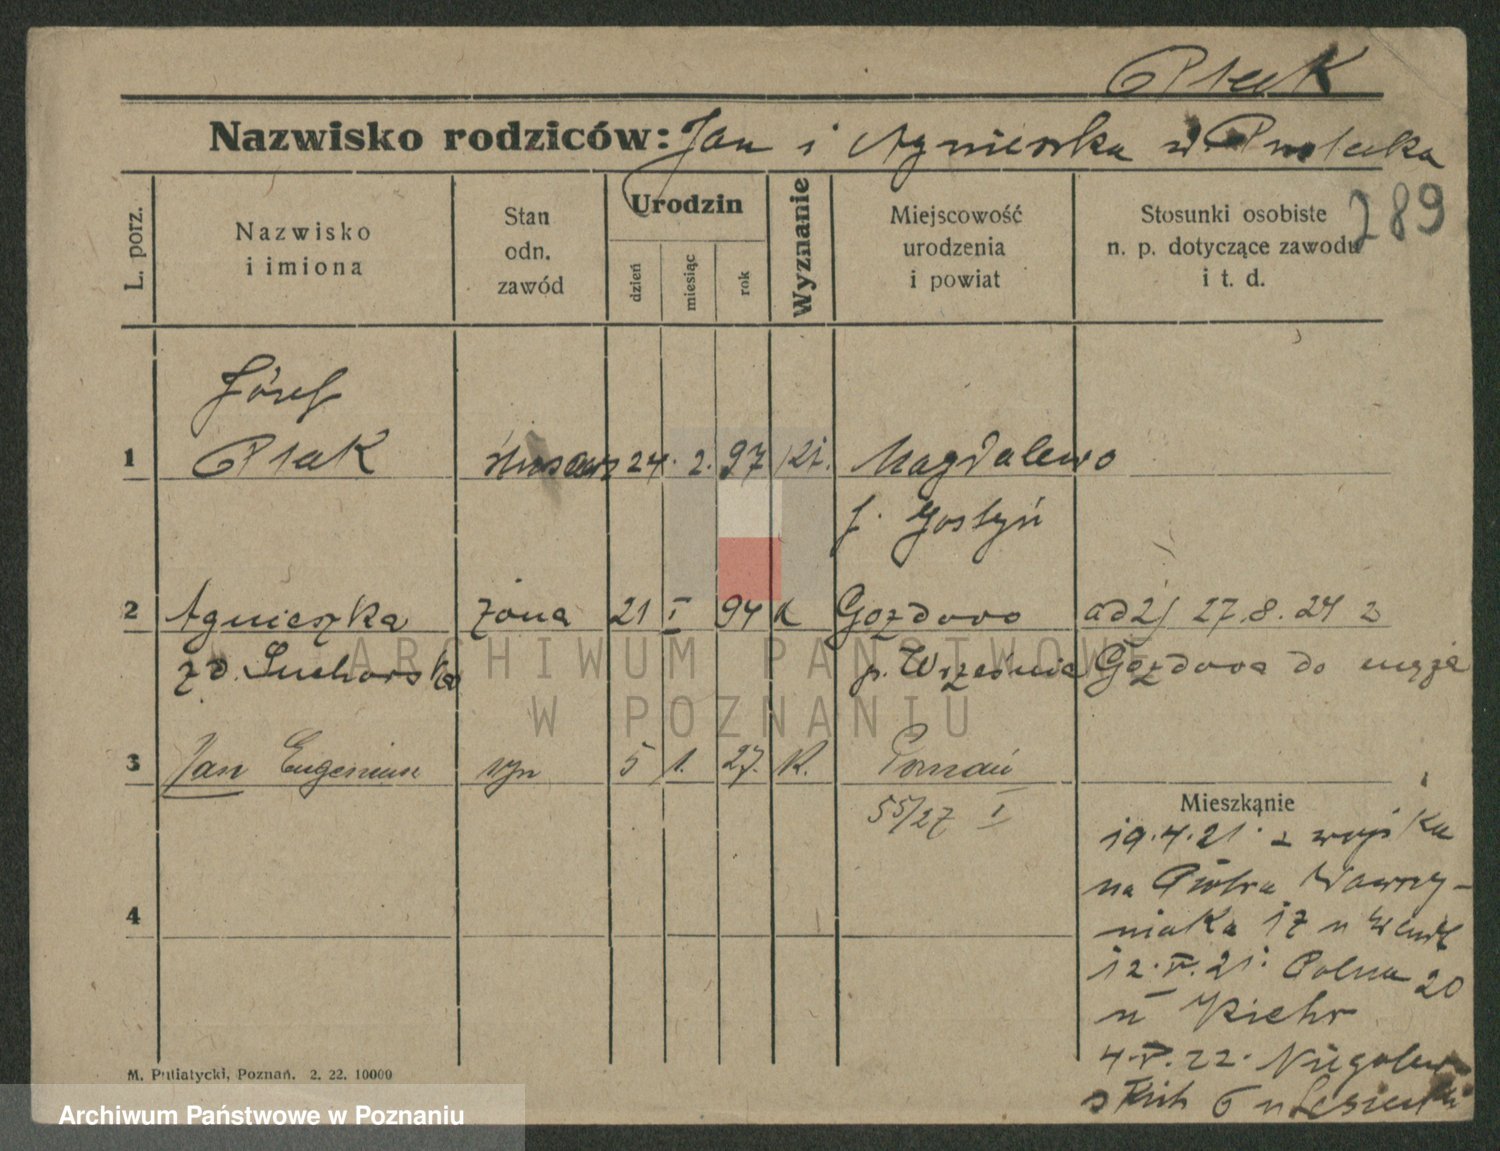 Ptak
Nazwisko rodziców: Jan i Agnieszka
289
L. porz.
Nazwisko
i imiona
Stan
odn.
zawód
Urodzin
dzień
miesiąc
rok
Wyznanie
Miejscowość
urodzenia
i powiat
Stosunki osobiste
n. p. dotyczące zawodu
i t. d.
Józef
1 Ptak 24. 2. 97 Magdalewo
Gostyń
2 Agnieszka żona 21 I 94 K Gozdowo 27.8.24 z
zd. Suchorska p. Września Gozdowa do męża
3 Jan Eugeniusz syn 5 1. 27. K. Poznań
55/27 I
Mieszkanie
19.4.21. z wojska
na Piotra Wawrzy-
4 niaka 17 u
12.V.21. Polna 20
u Kiehr
4.V.22. Niegolew-
skich 6 u
M. Putiatycki, Poznań. 2. 22. 10000
ARCHIWUM PAŃSTWOWE
W POZNANIU
Archiwum Państwowe w Poznaniu